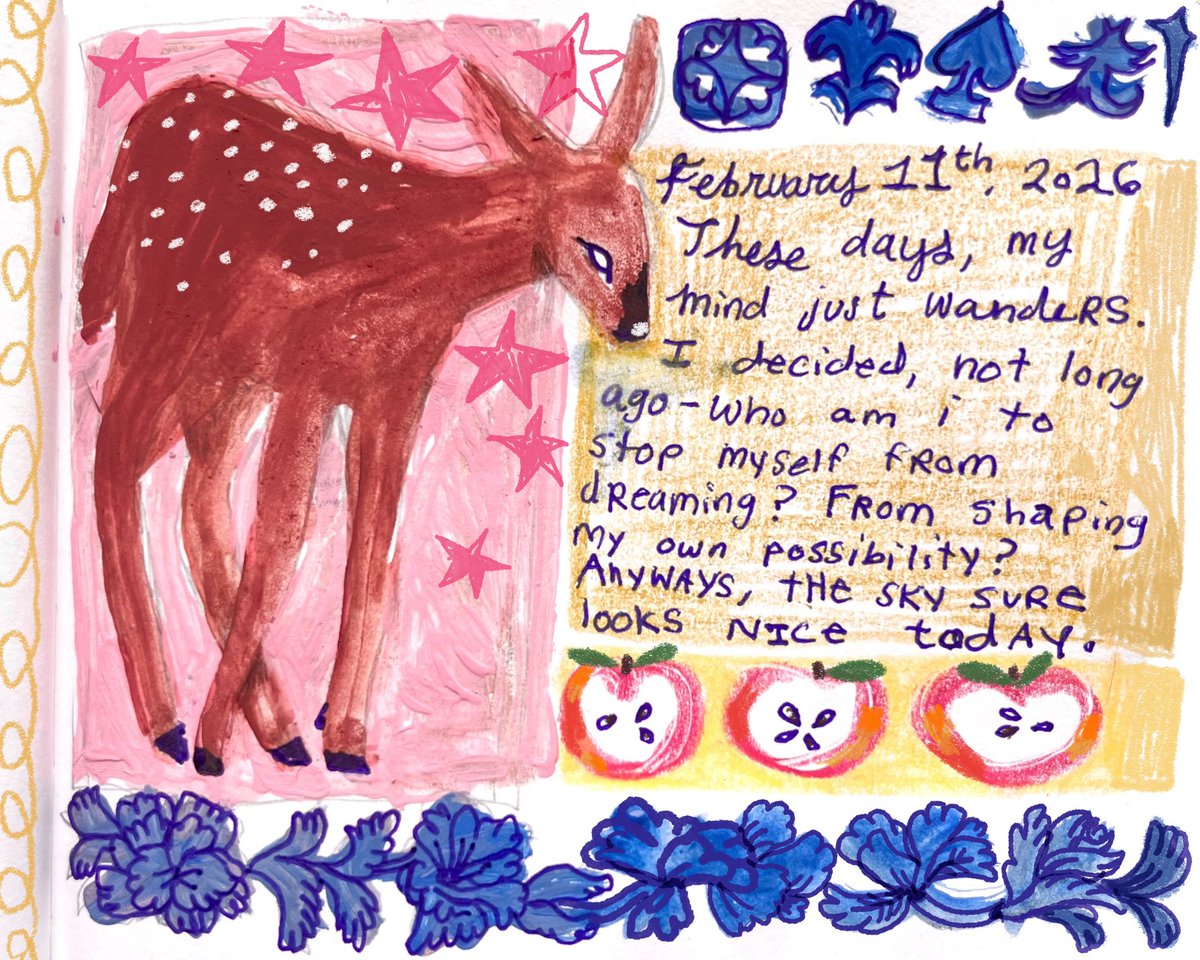 February 11th, 2026
These days, my
mind just wandeRs.
I decided, not long
ago - Who am i to
stop myself fRom
dReaming? FRom shaping
my own possibility?
AnyWAYS, tHe SKY SURe
looKS NICe todAY.